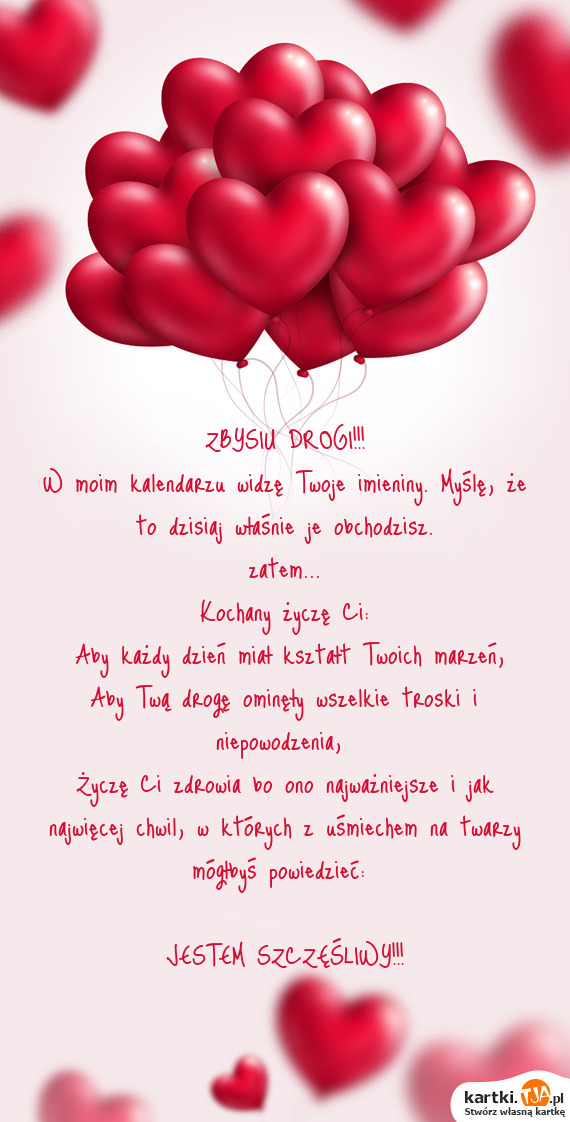 ZBYSIU DROGI!!!
W moim kalendarzu widzę Twoje imieniny. Myślę, że
to dzisiaj właśnie je obchodzisz.
zatem...
Kochany życzę Ci:
Aby każdy dzień miał kształt Twoich marzeń,
Aby Twą drogę ominęły wszelkie troski i
niepowodzenia,
Życzę Ci zdrowia bo ono najważniejsze i jak
najwięcej chwil, w których z uśmiechem na twarzy
mógłbyś powiedzieć:
JESTEM SZCZĘŚLIWY!!!
kartki.TJA.pl
Stwórz własną kartkę